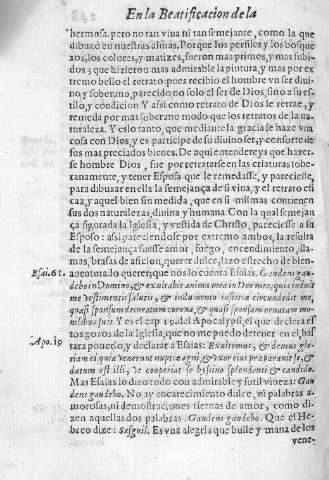 En la Beatificacion de la
hermosa, pero no tan viua ni tan semejante, como la que
dibuxò en nuestras almas. Porque los perfiles y los bosque
xos, los colores, y matizes, fueron mas primos, y mas subi-
dos; que hizieron mas admirable la pintura, y mas por ex
tremo bello el retrato: pues recibio el hombre vn ser diui-
no, y soberano, parecido no solo el ser de Dios, sino a su es-
tilo, y condicion. Y assi como retrato de Dios le retrae, y
remeda por mas soberano modo que los retratos de la na-
turaleza. Y es lo tanto, que mediante la gracia se haze vna
cosa con Dios, y es participe de su diuino ser, y consorte de
sus mas preciados bienes. De aqui entendereys que hazer-
se hombre Dios, fue por retratarse en las criaturas sobe-
ranamente, y tener Esposa que le remedasse, y pareciesse,
para dibuxar en ella la semejança de si viua, y el retrato efi
caz, y aquel bien sin medida, que en si mismas contienen
sus dos naturalezas, diuina y humana. Con la qual semejan
ça figurada la Iglesia, y vestida de Christo, pareciesse a su
Esposo: assi pareciendose por extremo ambos, la resulta
de la semejança fuesse amor, fuego, encendimiento, lla-
mas, brasas de aficion, querer dulce, lazo estrecho de bien-
Esai. 61. auenturado querer: que nos lo cuenta Esaias. Gaudens gau-
debo in Domino, & exultabit anima mea in Deo meo, quia induit
me vestimentis salutis, & indumento iustitiæ circundedit me,
quasi sponsum decoratum corona, & quasi sponsam ornatam mo-
nilibus suis. Y es el cap. 19. del Apocalypsi, el que declara es-
Apo. 19 tos gozos de la Iglesia, que no me puedo detener en el, bas
tara ponerlo, y declarar a Esaias: Exultemus, & demus glo-
riam ei quia venerunt nuptiæ agni & vxor eius præparauit se, &
datum est illi, vt cooperiat se byssino splendenti & candido.
Mas Esaias lo dixo todo con admirable y sutil viueza: Gau
dens gaudebo. No ay encarecimiento dulce, ni palabras a-
morosas, ni demostraciones tiernas de amor, como di-
zen aquellas dos palabras, Gaudens gaudebo. Que el He-
breo dize: Sasguil. Es vna alegria que bulle y mana de los
vene-